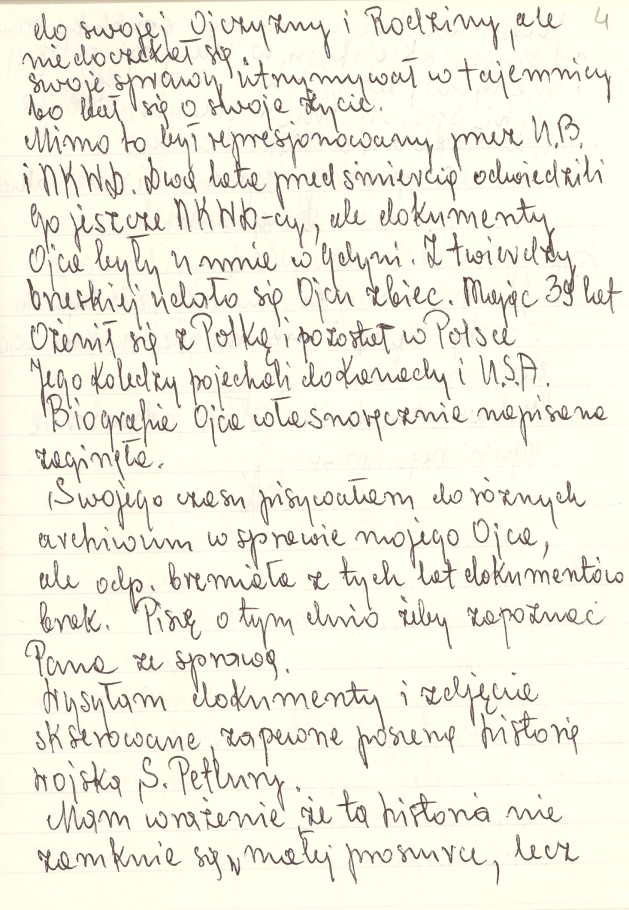 4
do swojej Ojczyzny i Rodziny, ale
nie doczekał się.
swoje sprawy utrzymywał w tajemnicy
bo bał się o swoje życie.
Mimo to był represjonowany przez U.B.
i NKWD. Dwa lata przed śmiercią odwiedzili
go jeszcze NKWD-cy, ale dokumenty
Ojca były u mnie w Gdyni. Z twierdzy
brzeskiej udało się Ojcu zbiec. Mając 39 lat
Ożenił się z Polką i pozostał w Polsce
Jego koledzy pojechali do Kanady i U.S.A.
Biografia Ojca własnoręcznie napisana
zaginęła.
Swojego czasu pisywałam do różnych
archiwum w sprawie mojego Ojca,
ale odp. brzmiała z tych lat dokumentów
brak. Piszę o tym żeby zapoznać
Pana ze sprawą.
Wysyłam dokumenty i zdjęcia
skserowane, zapewne poszerzę historię
wojska S. Petlury.
Mam wrażenie że ta historia nie
zamknie się w małej broszurce, lecz